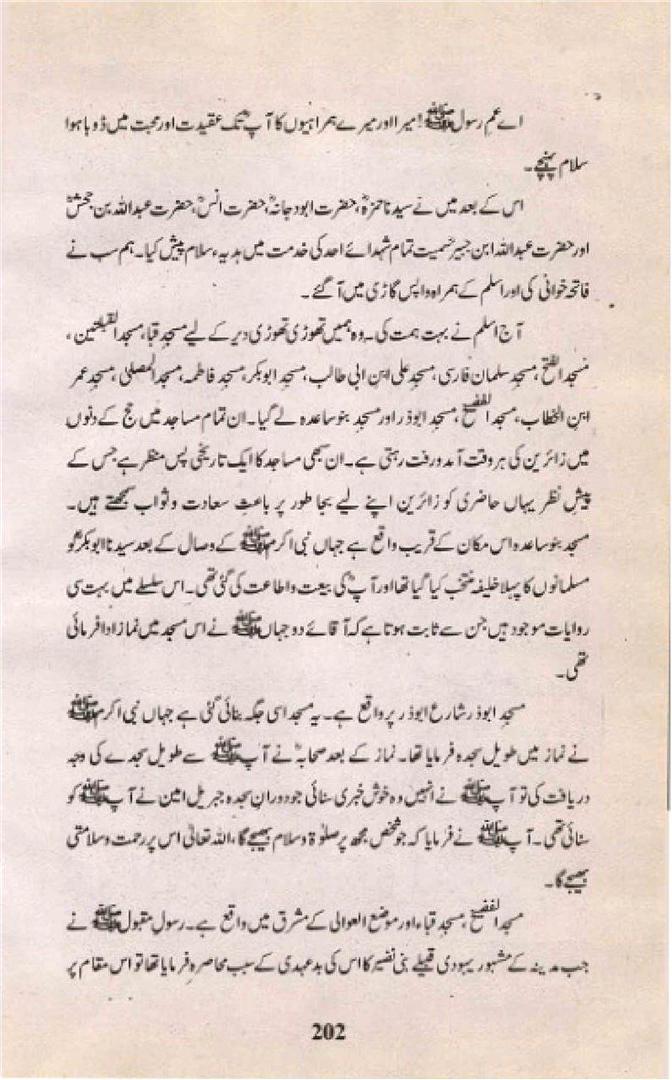 اے عم رسول ﷺ! میرا اور میرے ہمراہیوں کا آپؓ تک عقیدت اور محبت میں ڈوبا ہوا
سلام پہنچے۔
اس کے بعد میں نے سیدنا حمزہؓ، حضرت ابودجانہؓ، حضرت انسؓ، حضرت عبداللہ بن جحشؓ
اور حضرت عبداللہ ابن جبیرؓ سمیت تمام شہدائے احد کی خدمت میں ہدیہء سلام پیش کیا۔ ہم سب نے
فاتحہ خوانی کی اور اسلم کے ہمراہ واپس گاڑی میں آ گئے۔
آج اسلم نے بہت ہمت کی۔ وہ ہمیں تھوڑی تھوڑی دیر کے لیے مسجد قبا، مسجد القبلتین،
مسجد الفتح، مسجد سلمان فارسی، مسجد علی ابن ابی طالب، مسجد ابوبکر، مسجد فاطمہ، مسجد المصلیٰ، مسجد عمر
ابن الخطاب، مسجد الفضیح، مسجد ابوذر اور مسجد بنو ساعدہ لے گیا۔ ان تمام مساجد میں حج کے دنوں
میں زائرین کی ہر وقت آمد و رفت رہتی ہے۔ ان سبھی مساجد کا ایک تاریخی پس منظر ہے جس کے
پیش نظر یہاں حاضری کو زائرین اپنے لیے بجا طور پر باعثِ سعادت و ثواب سمجھتے ہیں۔
مسجد بنو ساعدہ اس مکان کے قریب واقع ہے جہاں نبی اکرم ﷺ کے وصال کے بعد سیدنا ابوبکرؓ کو
مسلمانوں کا پہلا خلیفہ منتخب کیا گیا تھا اور آپؓ کی بیعت و اطاعت کی گئی تھی۔ اس سلسلے میں بہت سی
روایات موجود ہیں جن سے ثابت ہوتا ہے کہ آقائے دو جہاں ﷺ نے اس مسجد میں نماز ادا فرمائی
تھی۔
مسجد ابوذر شارع ابوذر پر واقع ہے۔ یہ مسجد اسی جگہ بنائی گئی ہے جہاں نبی اکرم ﷺ
نے نماز میں طویل سجدہ فرمایا تھا۔ نماز کے بعد صحابہؓ نے آپ ﷺ سے طویل سجدے کی وجہ
دریافت کی تو آپ ﷺ نے انہیں وہ خوش خبری سنائی جو دورانِ سجدہ جبریل امین نے آپ ﷺ کو
سنائی تھی۔ آپ ﷺ نے فرمایا کہ جو شخص مجھ پر صلوٰۃ و سلام بھیجے گا، اللہ تعالیٰ اس پر رحمت و سلامتی
بھیجے گا۔
مسجد الفضیح، مسجد قباء اور موضع العوالی کے مشرق میں واقع ہے۔ رسول مقبول ﷺ نے
جب مدینہ کے مشہور یہودی قبیلے بنی نضیر کا اس کی بدعہدی کے سبب محاصرہ فرمایا تھا تو اس مقام پر
202